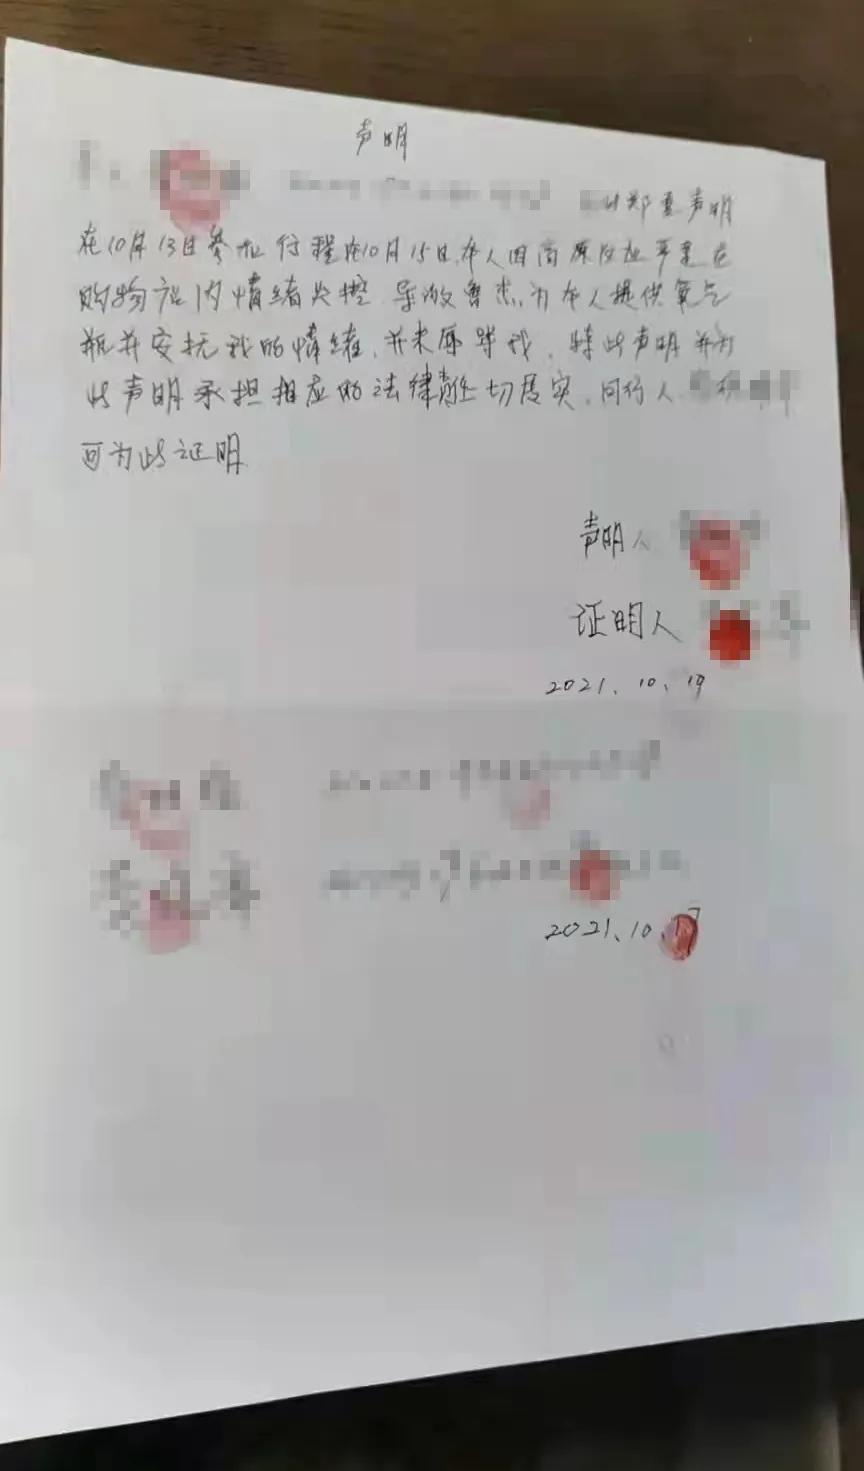 声明
此郑重声明
在10月13日参加行程在10月15日,本人因高原反应严重在
购物店内情绪失控,导游鲁杰,为本人提供氧气
瓶并安抚我的情绪,并未辱骂我,特此声明并为
此声明承担相应的法律责任切属实,同行人
可为此证明
声明人
证明人
2021.10.19
2021.10.17